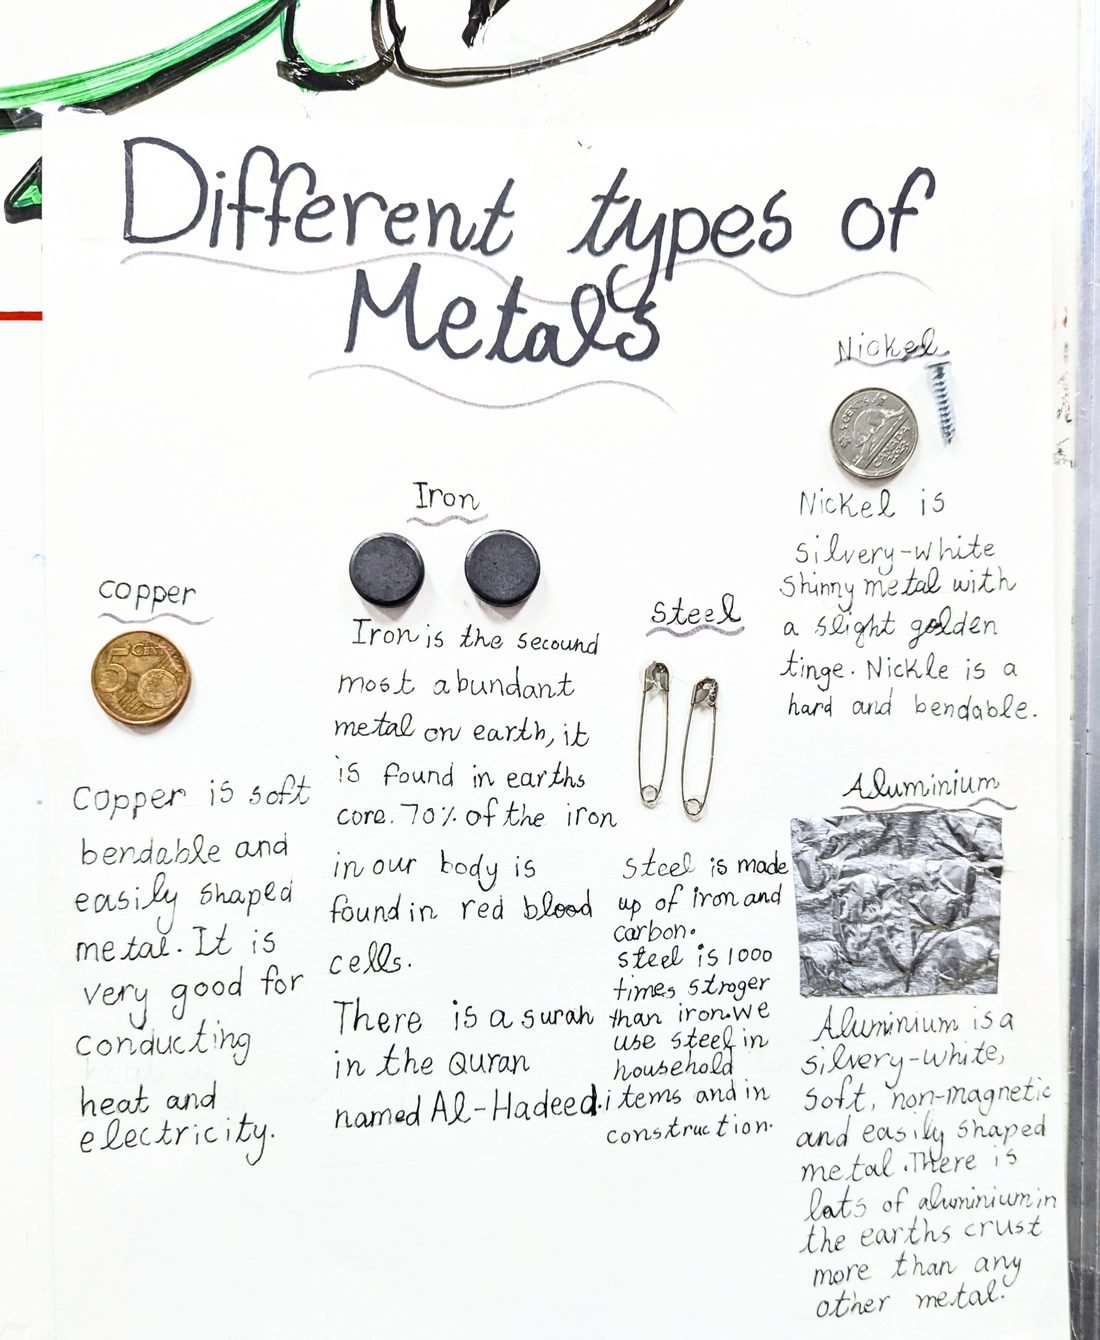 Different types of
Metals
copper
5 CENT
Copper is soft
bendable and
easily shaped
metal. It is
very good for
conducting
heat and
electricity.
Iron
Iron is the second
most abundant
metal on earth, it
is found in earths
core. 70% of the iron
in our body is
found in red blood
cells.
There is a surah
in the Quran
named Al-Hadeed.
Steel
Steel is made
up of iron and
carbon.
steel is 1000
times stroger
than iron.we
use steel in
household
items and in
construction.
Nickel
CANADA
Nickel is
silvery-white
shinny metal with
a slight golden
tinge. Nickle is a
hard and bendable.
Aluminium
Aluminium is a
silvery-white,
soft, non-magnetic
and easily shaped
metal. There is
lots of aluminium in
the earths crust
more than any
other metal.